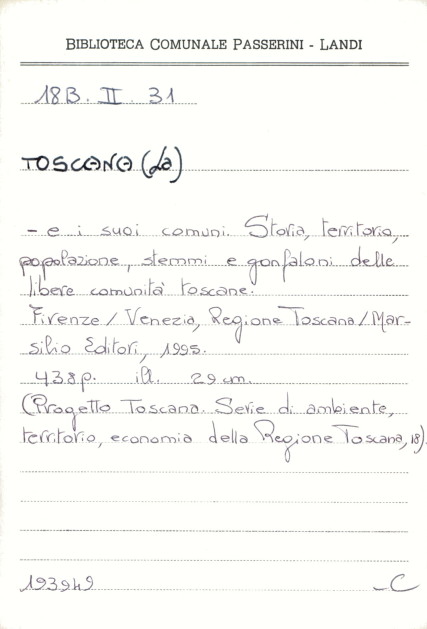 BIBLIOTECA COMUNALE PASSERINI - LANDI
18B. II. 31
TOSCANA (La)
- e i suoi comuni. Storia, territorio,
popolazione, stemmi e gonfaloni delle
libere comunità toscane.
Firenze / Venezia, Regione Toscana / Mar-
silio Editori, 1995.
438p. ill. 29 cm.
(Progetto Toscana. Serie di ambiente,
territorio, economia della Regione Toscana, 18).
193949 -C